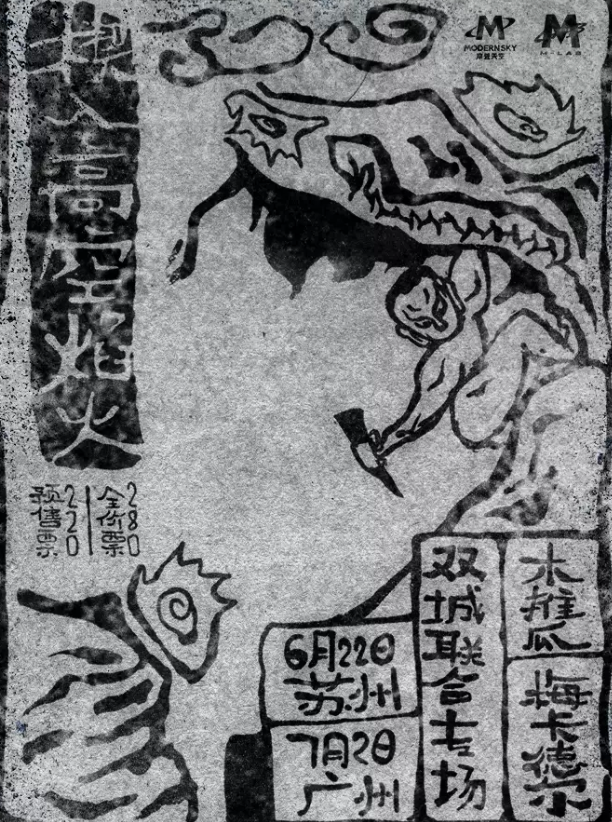 MODERNSKY
摩登天空
M-LAB
入高空焰火
预售票220
全价票280
木推瓜
梅卡德尔
双城联合专场
6月22日
苏州
7月2日
广州